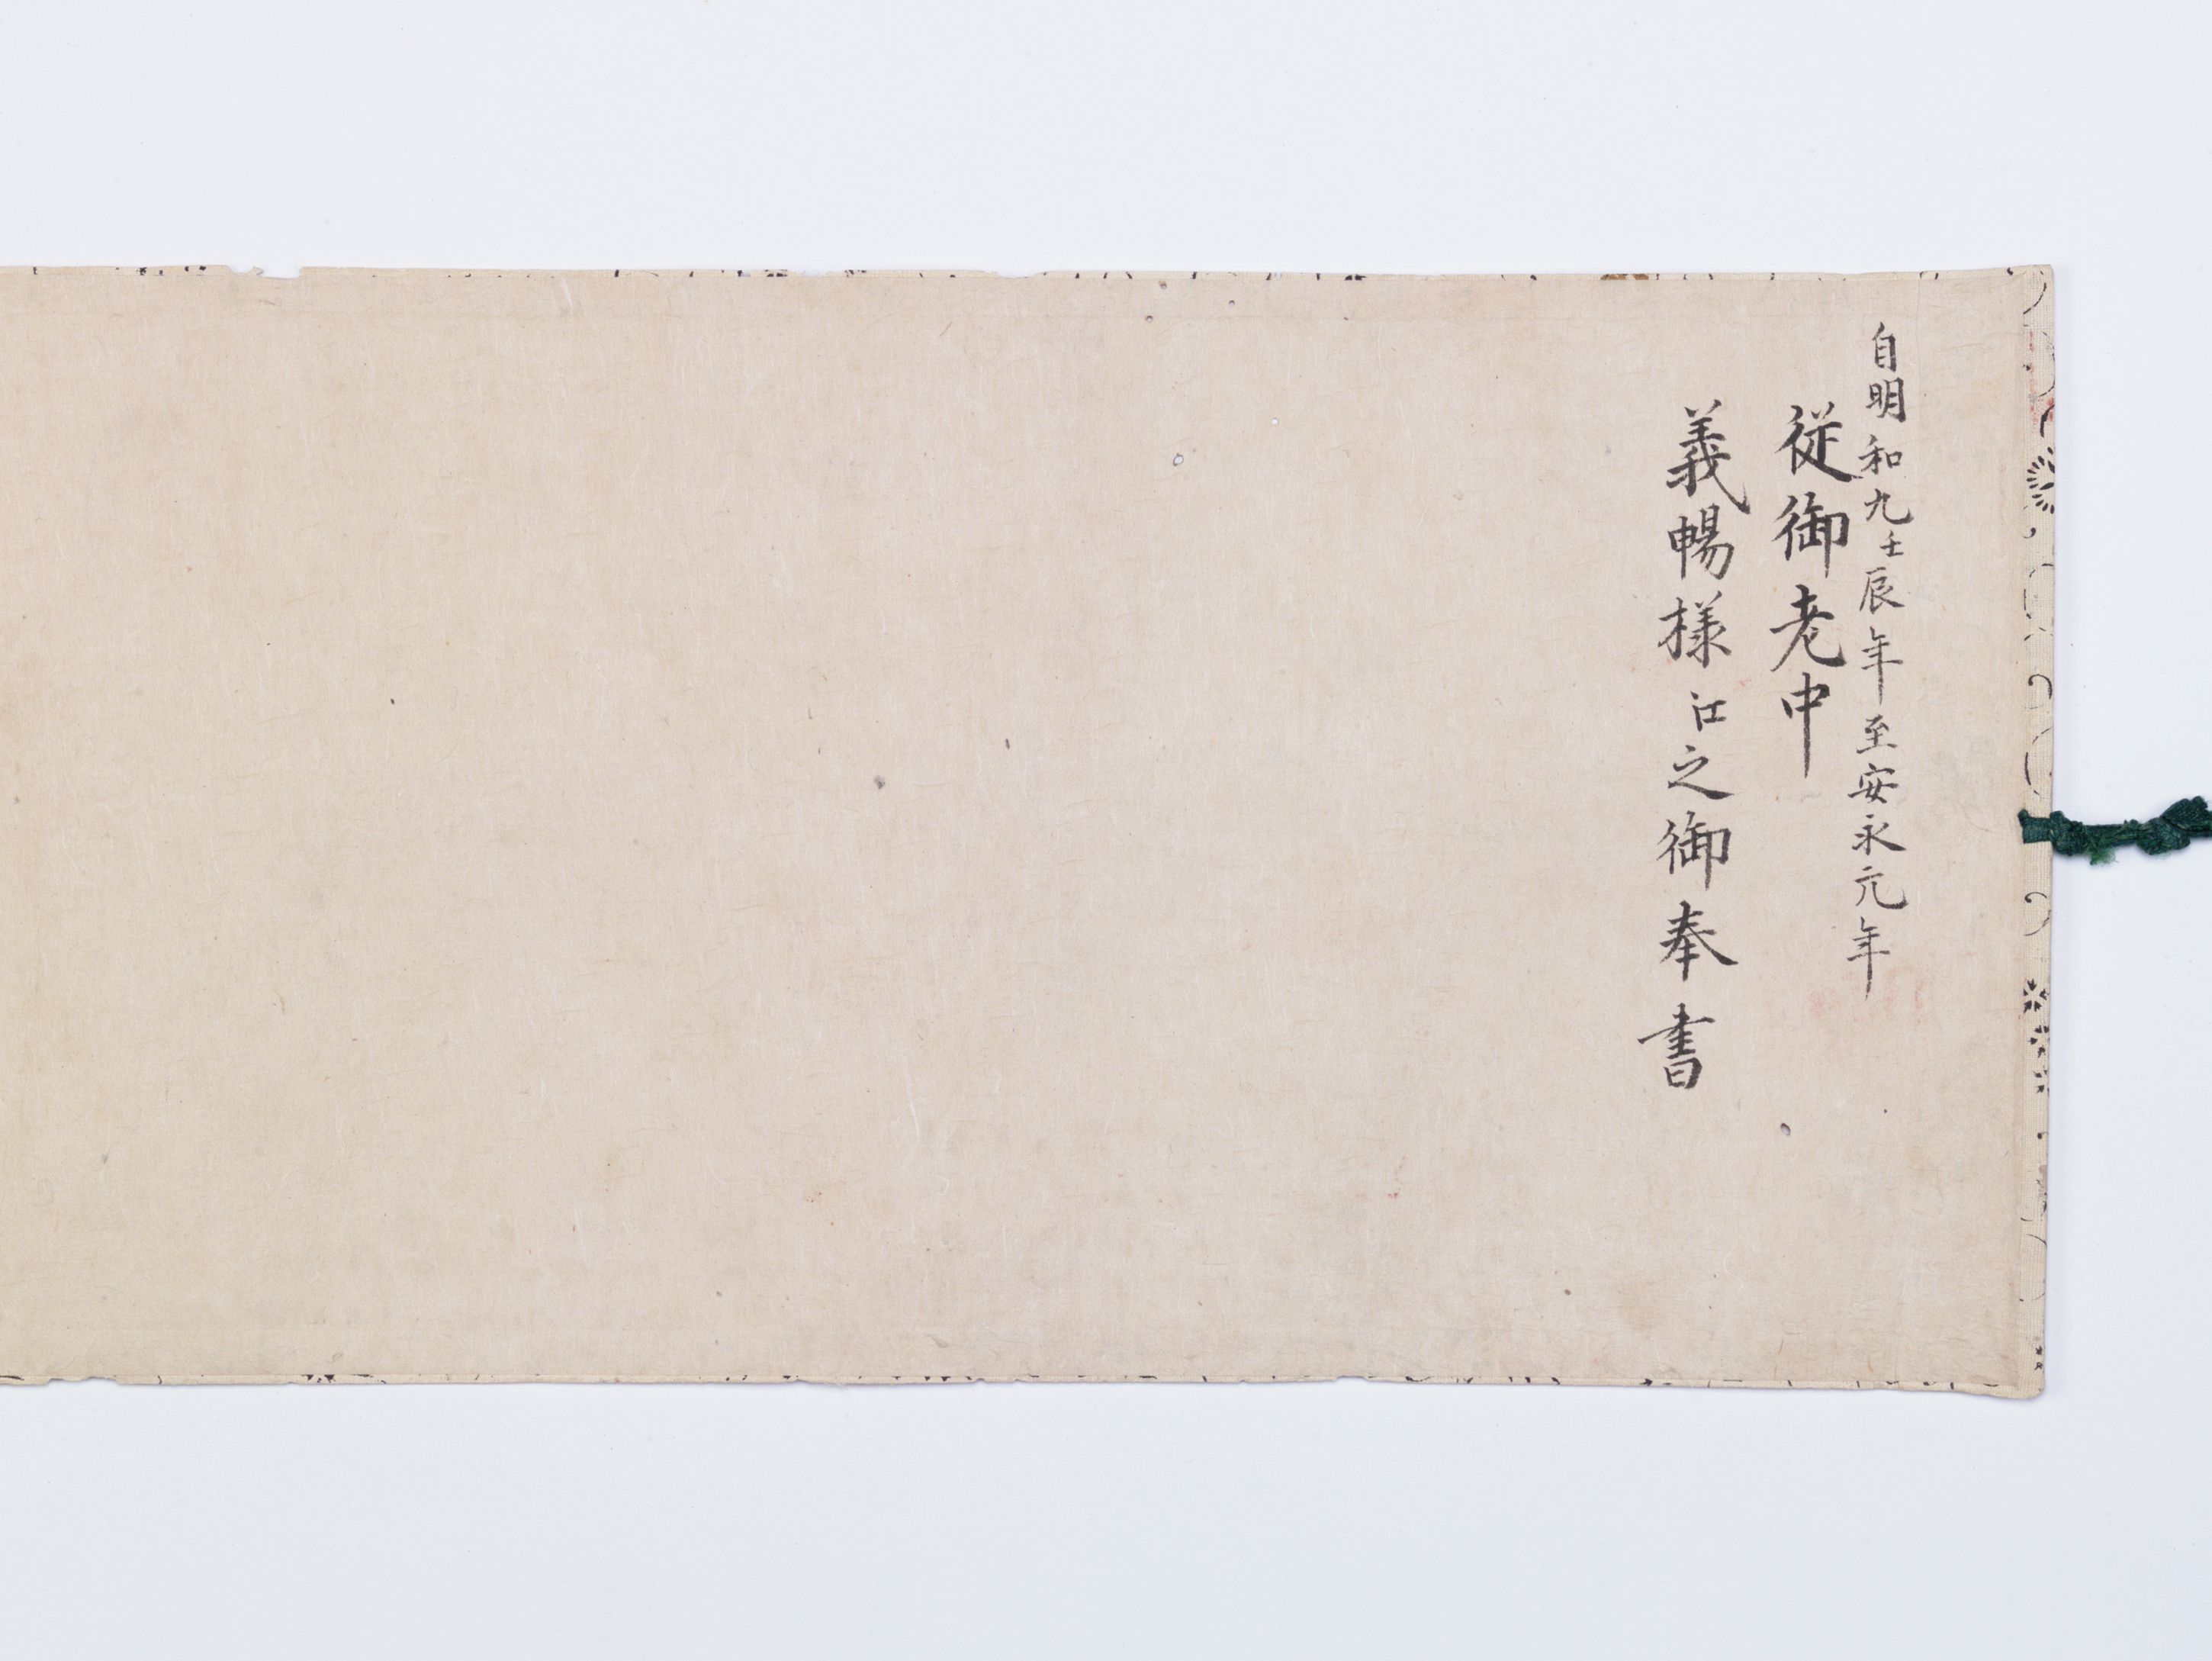 自明和九壬辰年至安永元年
従御老中
義暢様江之御奉書